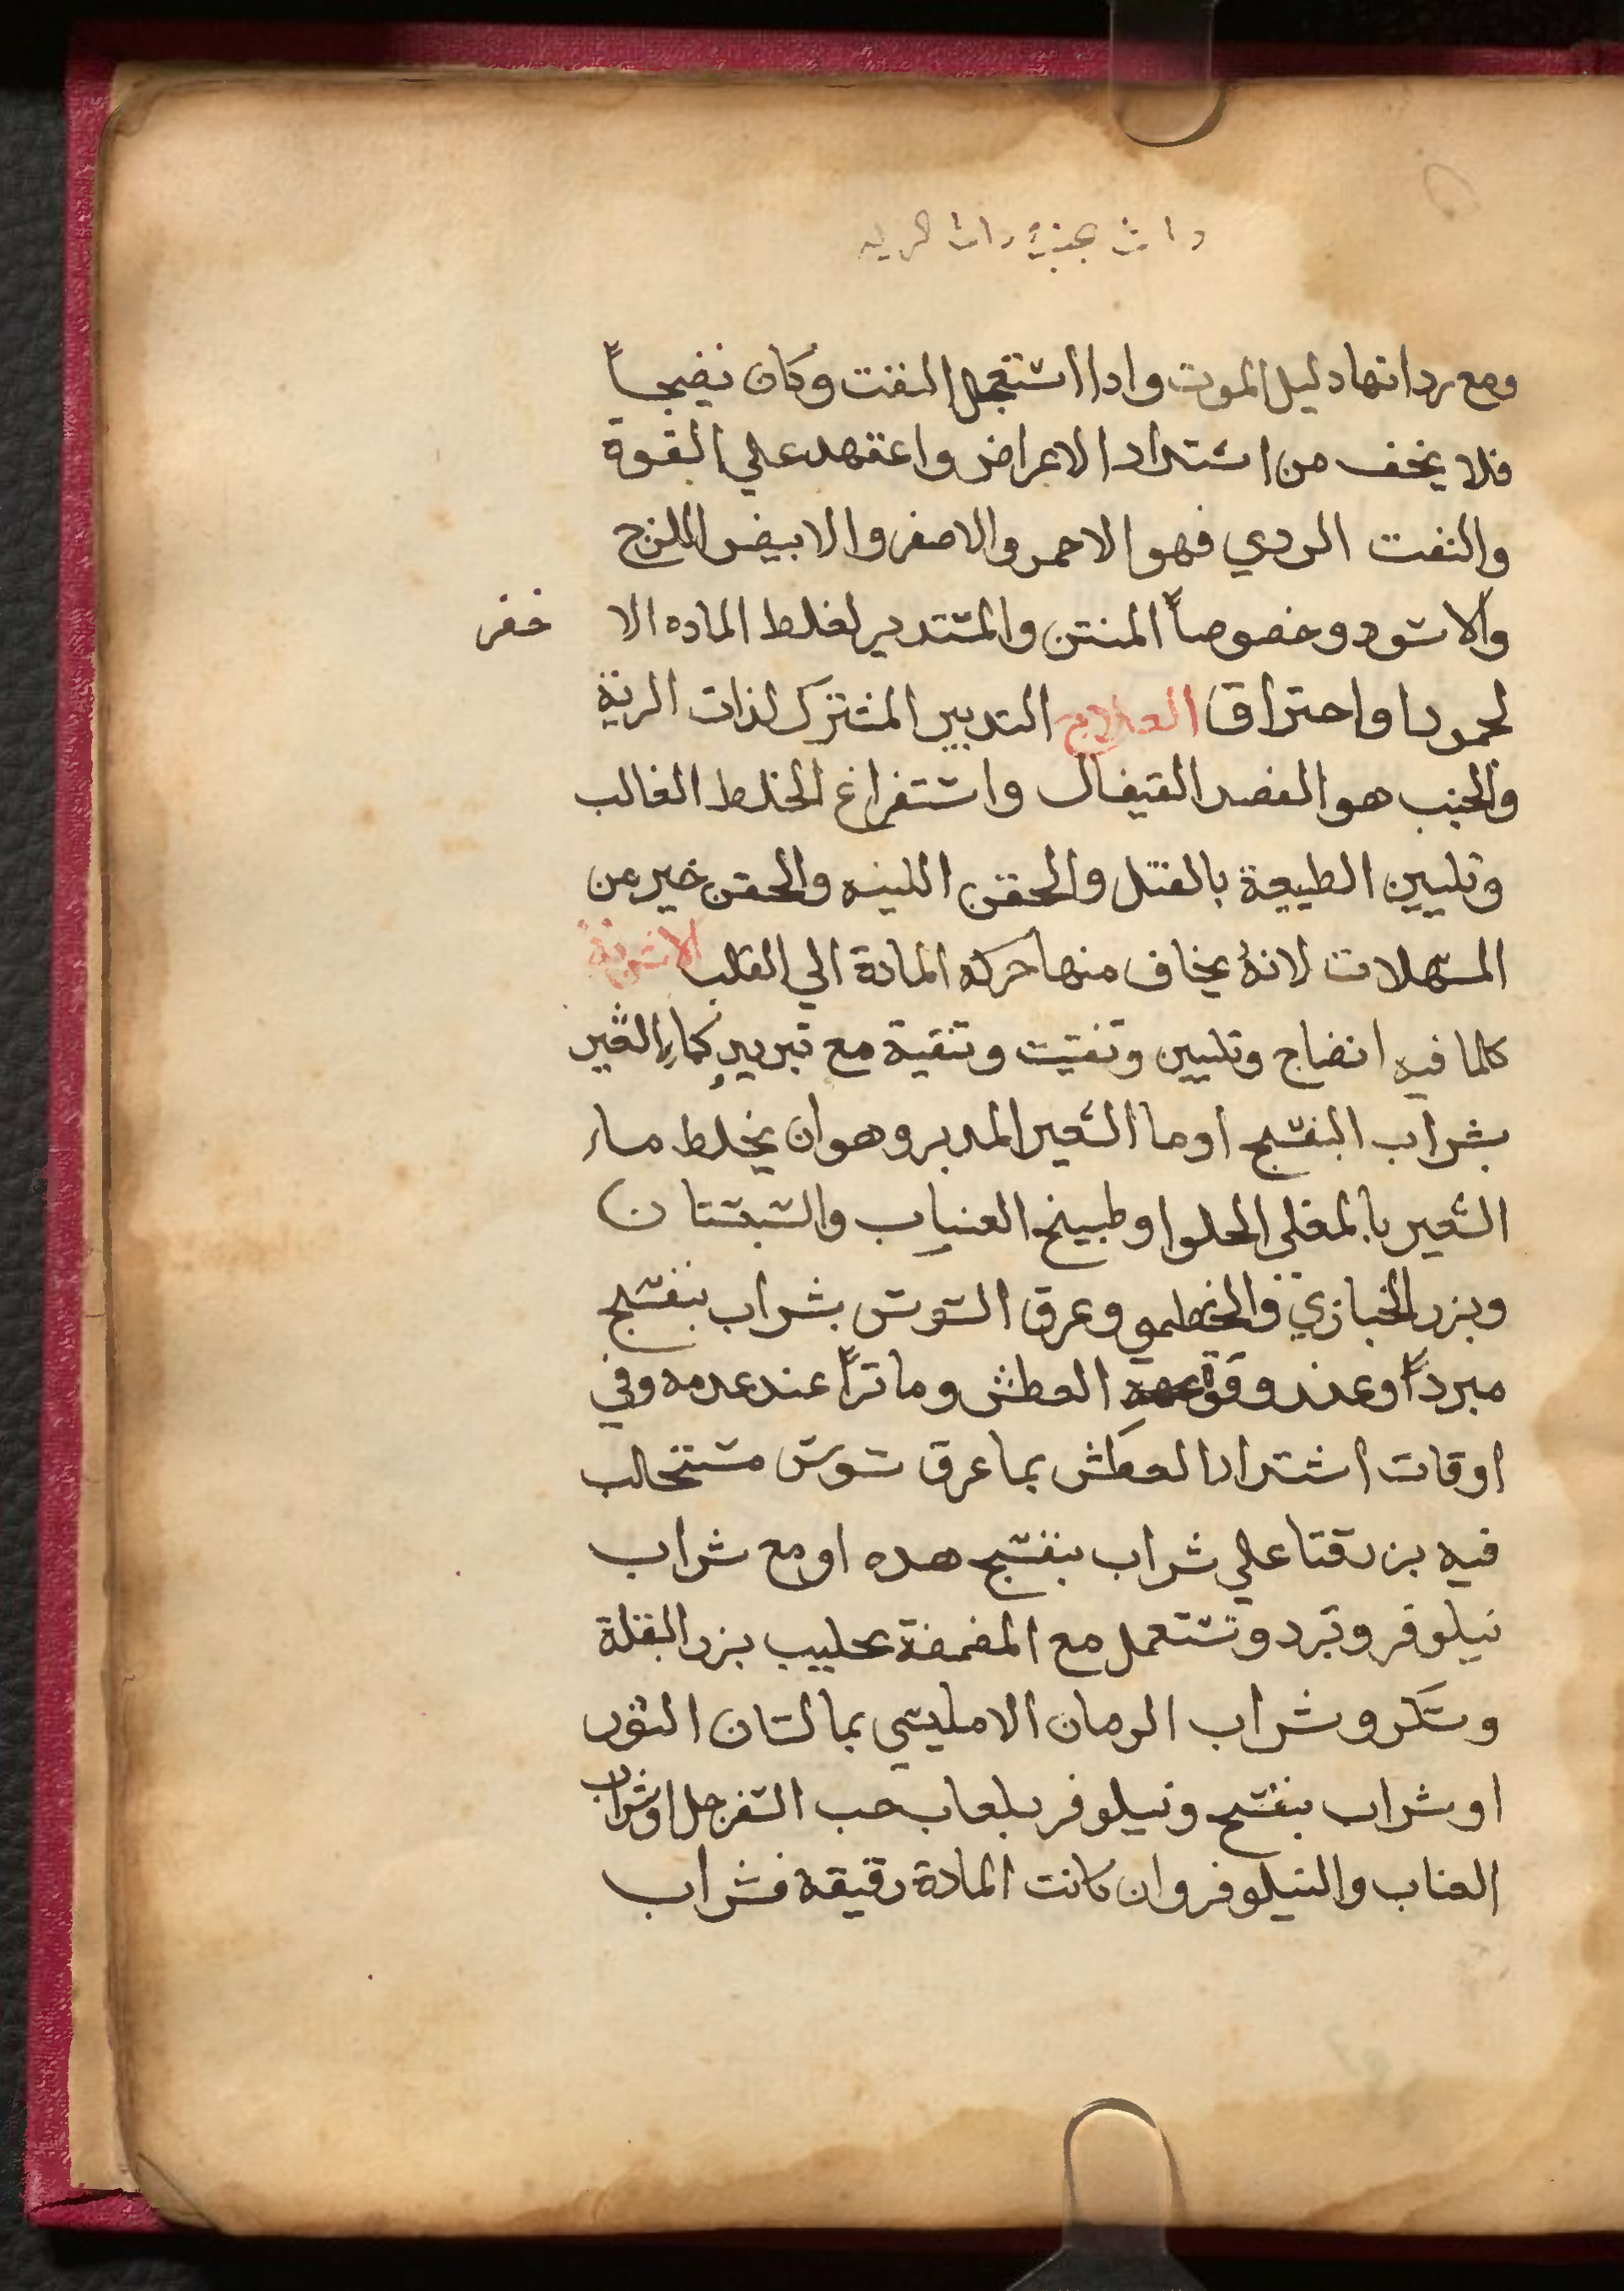 ومع رداتها دليل الموت وادا استعجل النفت وكان نضيجاً
فلا يخف من اشتداد الاعراض واعتهد علي القوة
والنفت الردي فهو الاحمر والاصفر والابيض اللزج
والاسود وخصوصاً المنتن والمستدير لغلط الماده الا خضر
لجمودا واحتراق العلاج التدبير المشترك لذات الرية
والجنب هو الفصد القيفال واستفراغ الخلط الغالب
وتليين الطبيعة بالفتل والحقن اللينه والحقن خير من
المسهلات لانهُ يخاف منها حركه المادة الي القلب الاشربة
كلما فيه انضاج وتليين وتفتيت وتنقية مع تبريدٍ كماءِ الشعير
بشراب البنفسج اوما الشعير المدبر وهو ان يخلط ماء
الشعير بالمغلي الحلو او طبيخ العناب والسبستان
وبزر الخبازي والخطمي وعرق السوس بشراب بنفسج
مبرداً وعند وقوة العطش وماترّاً عند عدمه وفي
اوقات اشتداد العطش بما عرق سوس مستحلب
فيه بزرقتا علي شراب بنفسج هده او مع شراب
نيلوفر وتبرد وتستعمل مع المضمضة بحليب بزر البقلة
وسكر وشراب الرمان الامليسي بما لسان الثور
او شراب بنفسج ونيلوفر بلعاب حب السفرجل او شراب
العناب والنيلوفر وان كانت المادة رقيقة فشراب